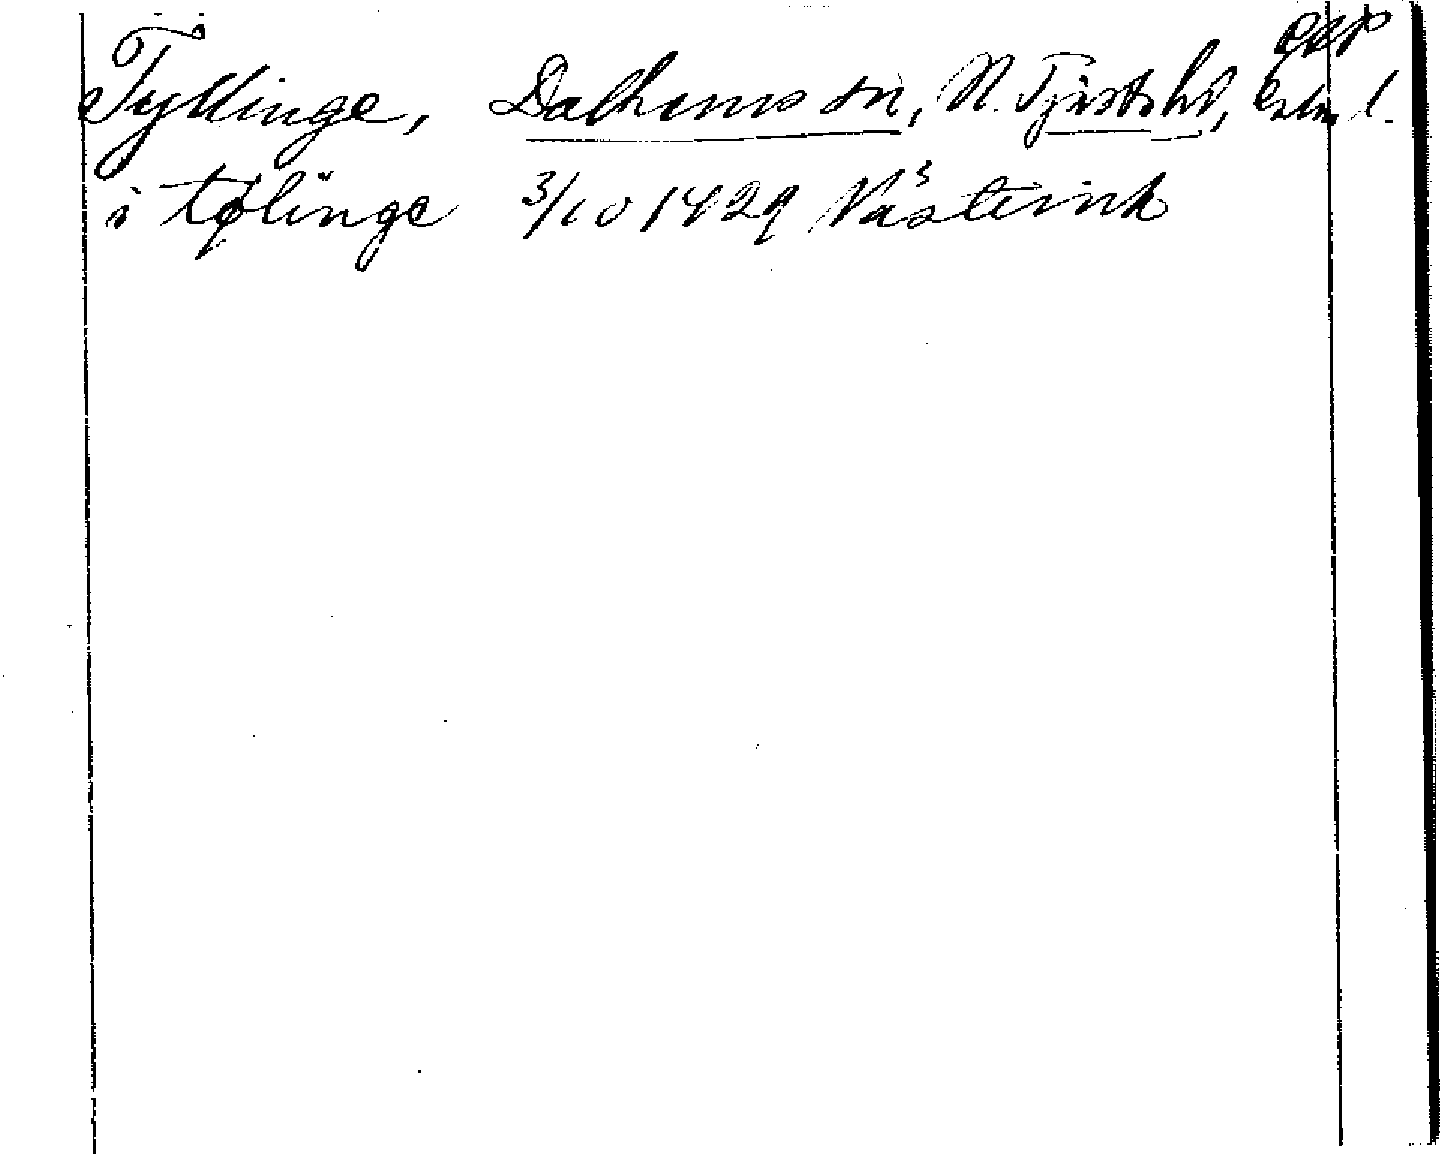 Tyllinge, Dalhems sn, N. Tjusts hd, Kalm l.
i tølinge 3/10 1429 Västervik